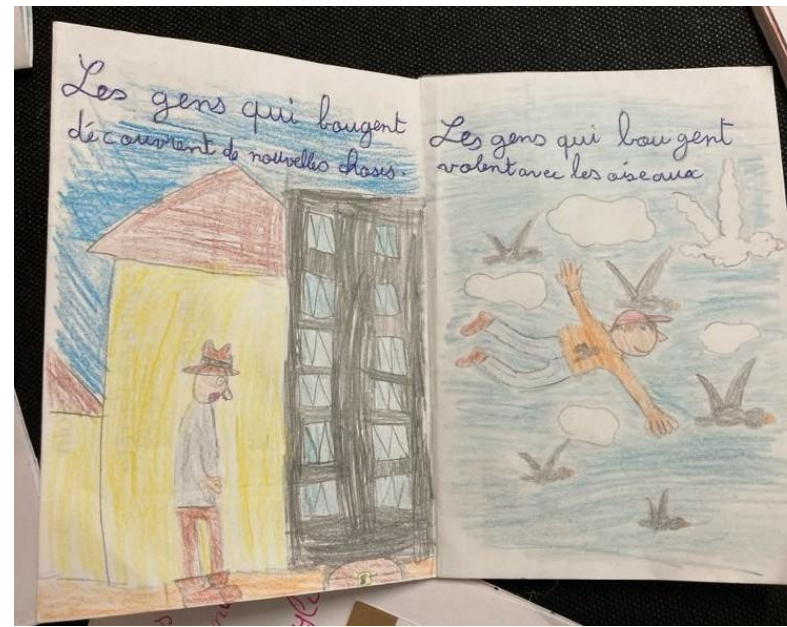 Les gens qui bougent
découvrent de nouvelles choses.
Les gens qui bougent
volent avec les oiseaux